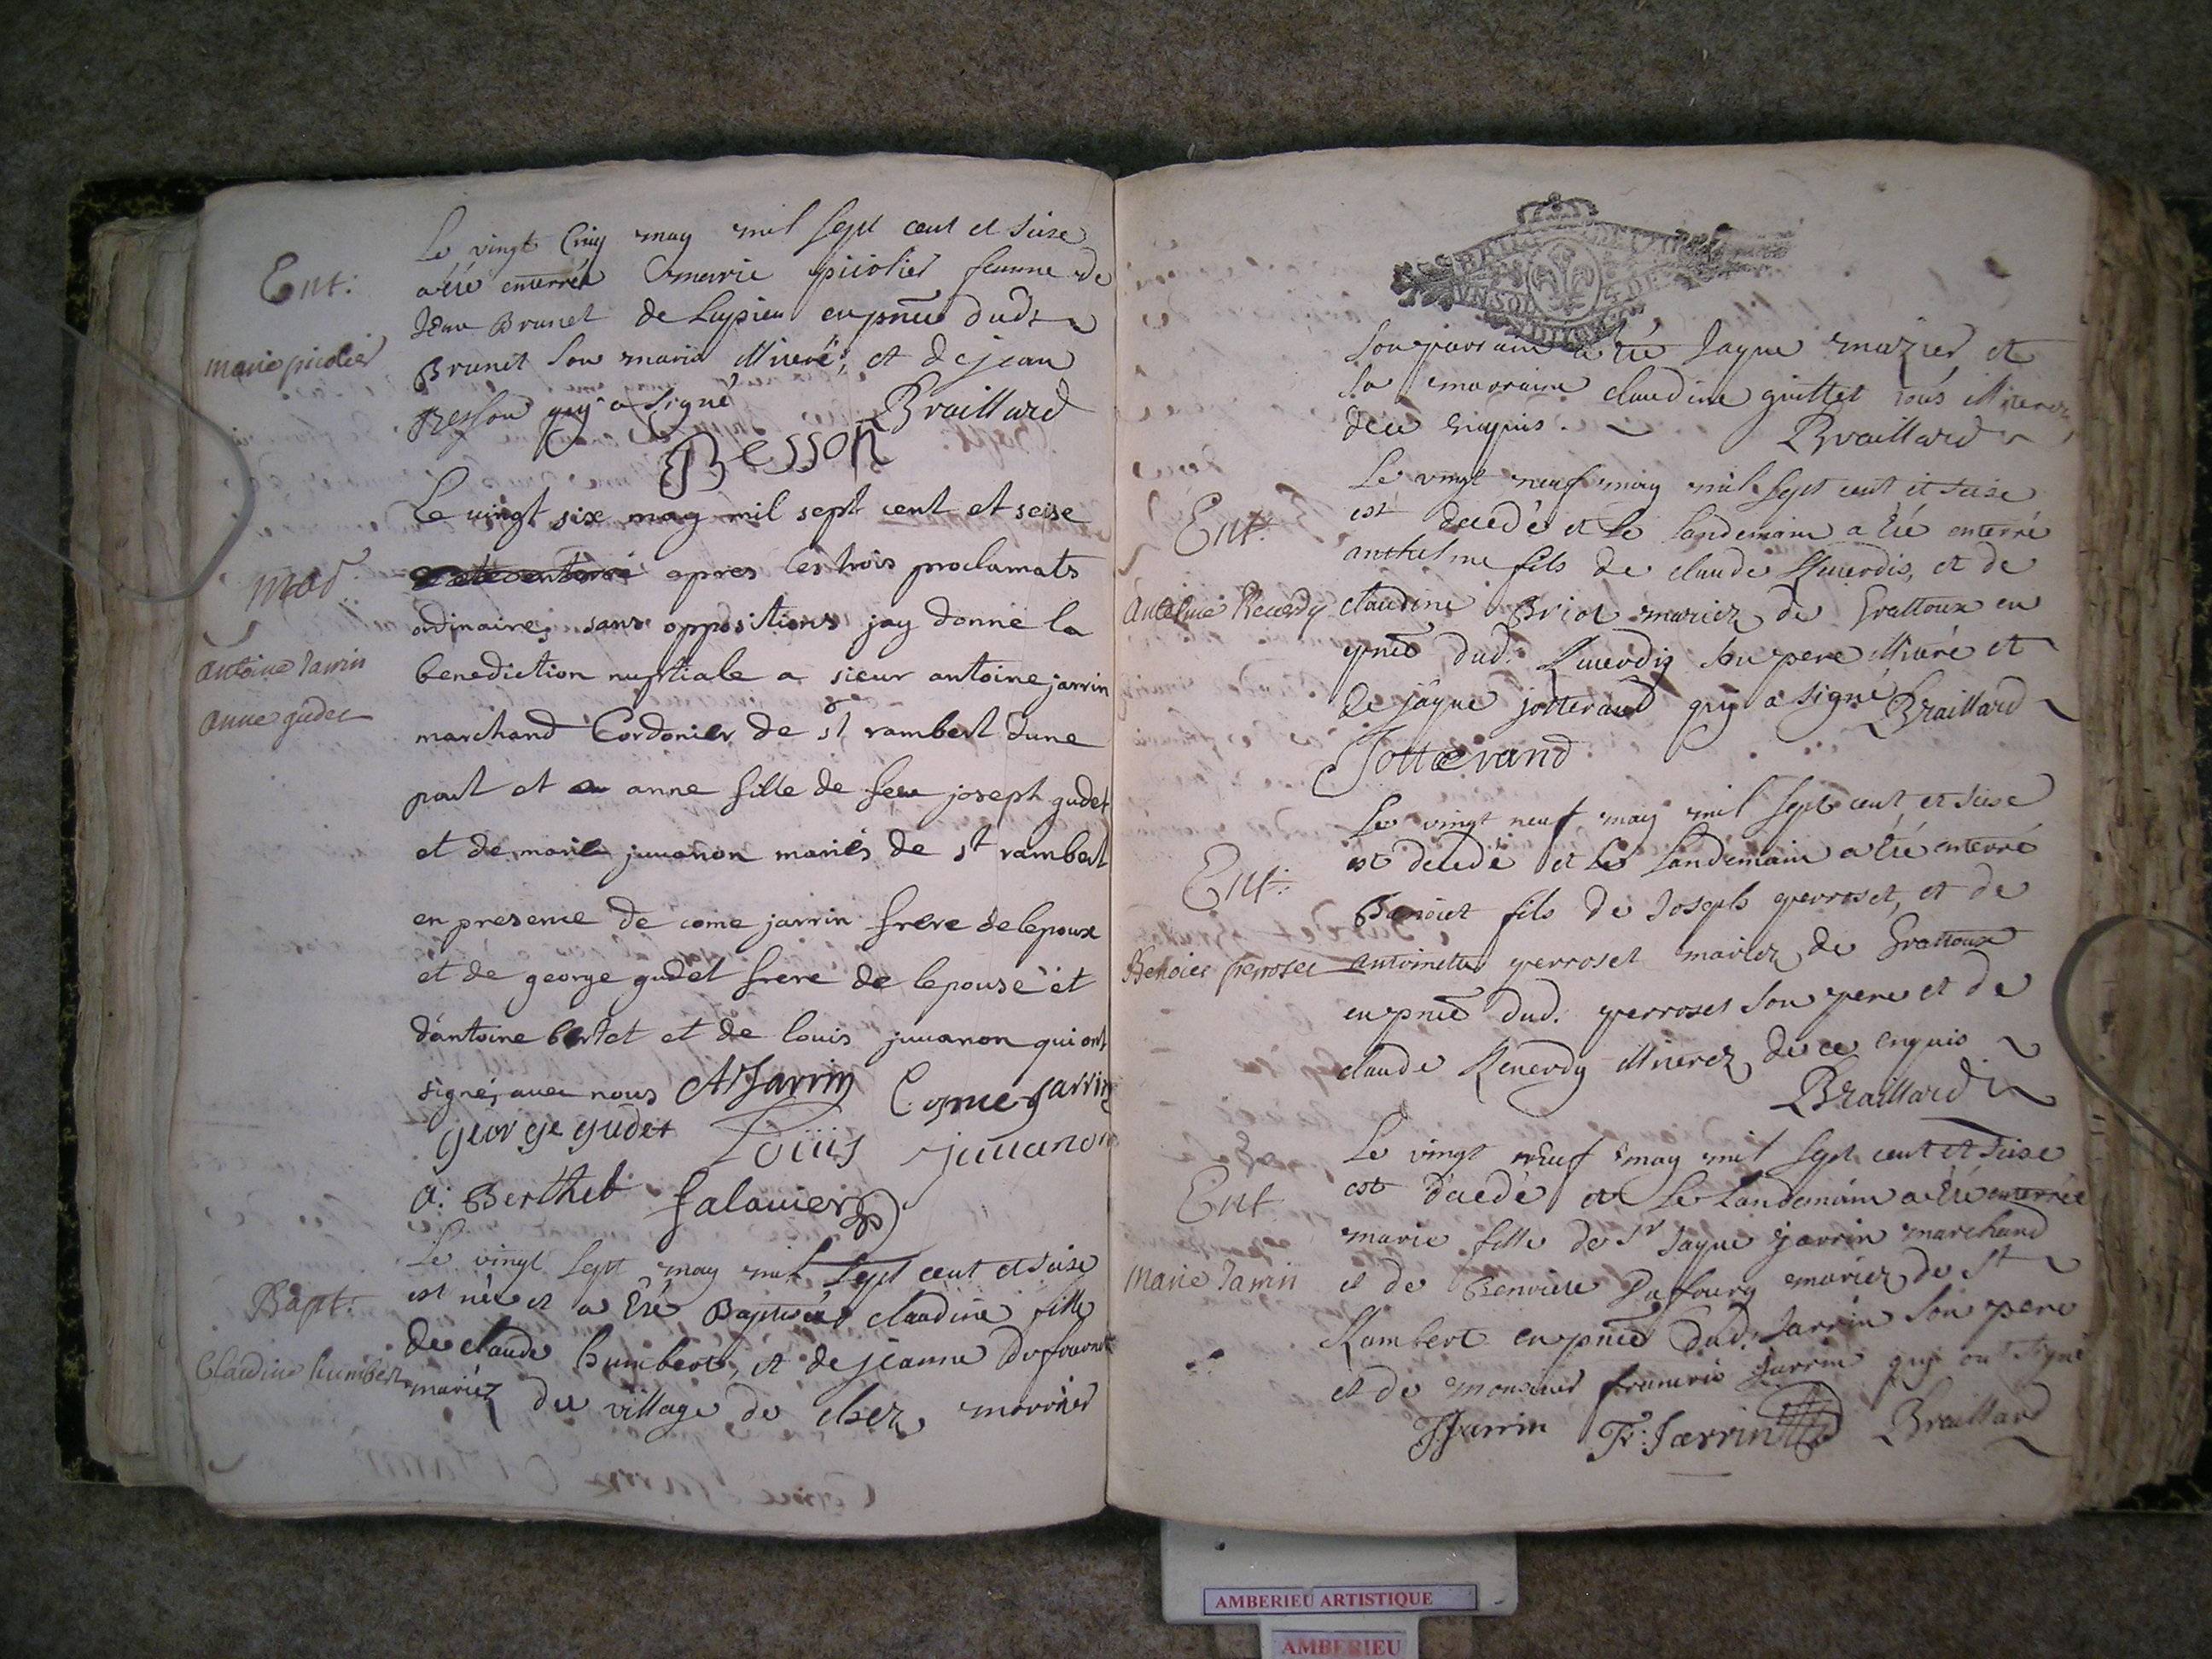 Ent:
marie picolier
Le vingt Cinq may mil sept cent et seise
a été enterrée marie picolier femme de
Jean Brunet de Lupieu en pnce dudt
Brunet son marid illiteré, et de jean
Besson quy a signé Braillard
Besson
mad.
antoine Jarrin
anne gudet
Le vingt six may mil sept cent et seise
apres les trois proclamats
ordinaires sans oppositions jay donné la
benediction nuptiale a sieur antoine jarrin
marchand Cordonier de st rambert dune
part et anne fille de feu joseph gudet
et de marie juuanon mariés de st rambert
en presence de come jarrin frere de lepoux
et de george gudet frere de lepouse et
dantoine bertet et de louis juuanon qui ont
signé, auec nous A Jarrin Come Jarrin
george gudet Loüis juuanon
a: Berthet falauier
Bapt:
Claudine humbert
Le vingt sept may mil sept cent et seise
est née et a été Baptisée claudine fille
de claude humbert, et de jeanne
mariez du village de
son parrain a été Jaque mazier et
sa marraine claudine guittet tous illiterez
de ce enquis. Braillard
Ent.
Antelme Reuerdy
Le vingt neuf may mil sept cent et seise
est decedé et le landemain a été enterré
anthelme fils de claude Reuerdis, et de
claudine Briot mariez de Grattoux en
pnce dud. Reuerdis son pere illiteré et
de jaque jotterand quy a signé Braillard
Jotterand
Ent:
Benoict perroset
Le vingt neuf may mil sept cent et seise
est decedé et le landemain a été enterré
Benoict fils de Joseph perroset, et de
antoinette perroset mariez de Grattoux
en pnce dud. perroset son pere et de
claude Reuerdy illiterez de ce enquis
Braillard
Ent
Marie Jarrin
Le vingt neuf may mil sept cent et seise
est decedé et le landemain a été enterrée
marie fille de sr Jaque jarrin marchand
et de Benoite Dufourg mariez de st
Rambert en pnce dud. Jarrin son pere
et de monsieur francois Jarrin quy ont signé
JJarrin Fr: Jarrin Braillard
AMBERIEU ARTISTIQUE
AMBERIEU